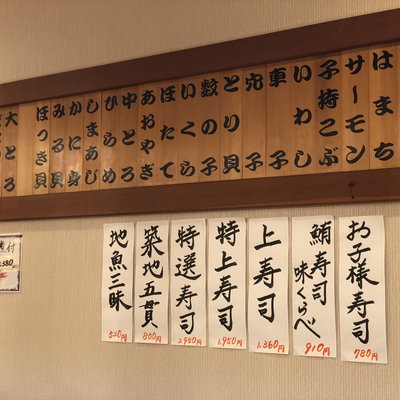 はまち
サーモン
子持こぶ
いわし
車子
穴子
とり貝
数の子
いくら
ほたて
あおやぎ
中とろ
ひらめ
しまあじ
かに身
みる貝
ほっき貝
大とろ
お子様寿司
780円
鮪寿司
味くらべ
910円
上寿司
1,360円
特上寿司
1,950円
特選寿司
2,980円
築地五貫
800円
地魚三昧
520円
付